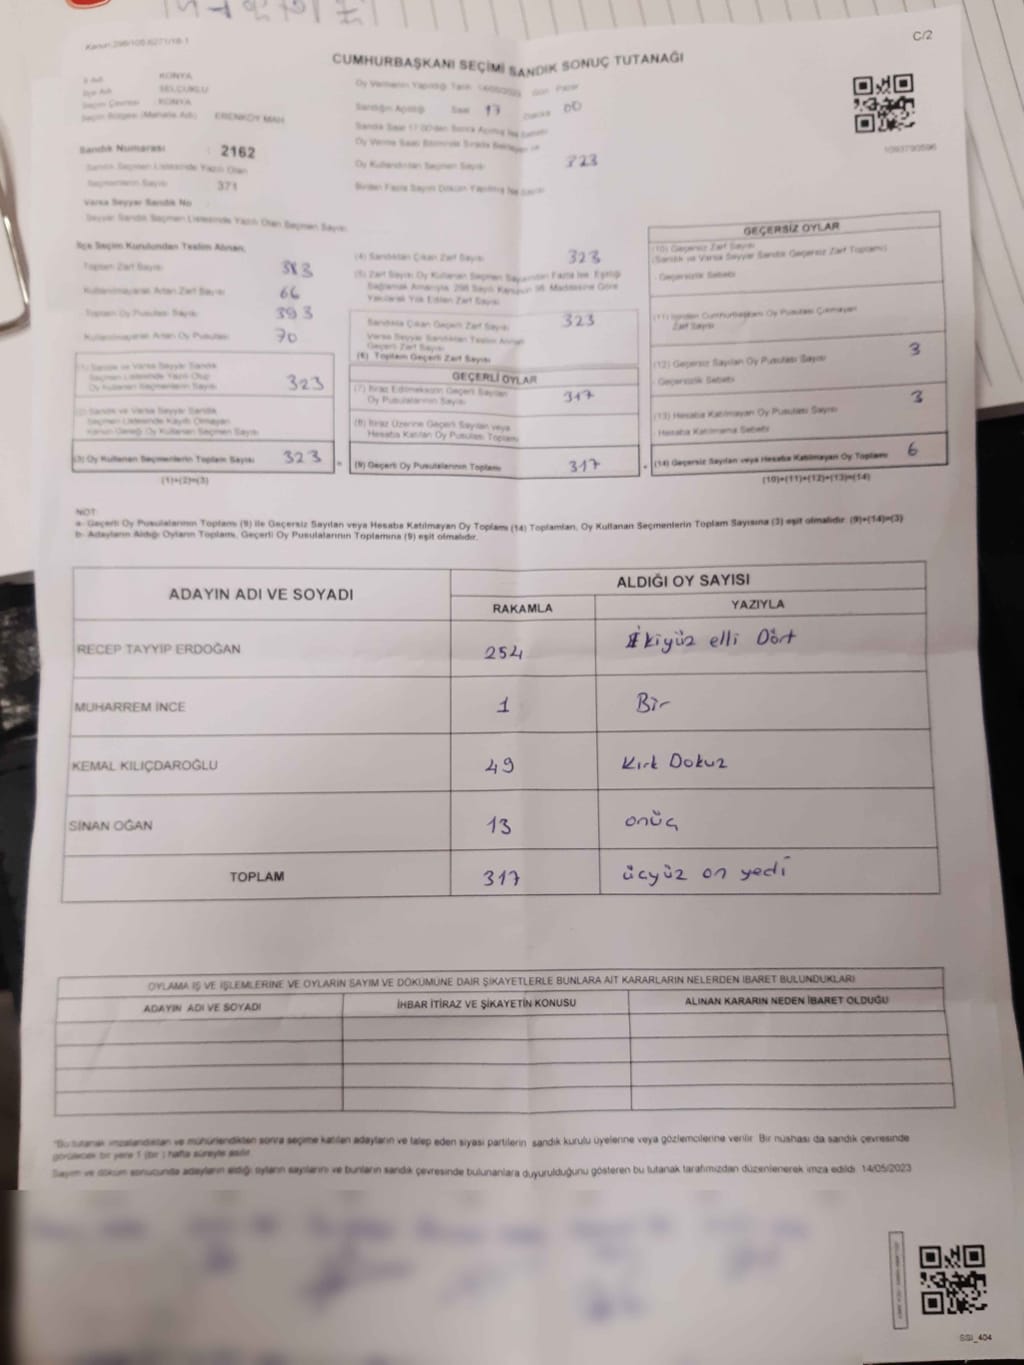 Kanun:298/105 6271/16-1
C/2
CUMHURBAŞKANI SEÇİMİ SANDIK SONUÇ TUTANAĞI
İl Adı KONYA
İlçe Adı SELÇUKLU
Seçim Çevresi KONYA
Seçim Bölgesi (Mahalle Adı) ERENKÖY MAH
Oy Vermenin Yapıldığı Tarih 14/05/2023 Gün Pazar
Sandığın Açıldığı Saat 17 Dakika 00
Oy Kullandırılan Seçmen Sayısı 323
Birden Fazla Sayım Döküm Yapılmış İse Sayısı
1093790596
Sandık Numarası 2162
Sandık Seçmen Listesinde Yazılı Olan
Seçmenlerin Sayısı 371
Varsa Seyyar Sandık No
Seyyar Sandık Seçmen Listesinde Yazılı Olan Seçmen Sayısı
İlçe Seçim Kurulundan Teslim Alınan;
Toplam Zarf Sayısı
Kullanılmayarak Artan Zarf Sayısı 66
Toplam Oy Pusulası Sayısı 393
Kullanılmayarak Artan Oy Pusulası 70
(1) Sandık ve Varsa Seyyar Sandık
Seçmen Listesinde Yazılı Olup
Oy Kullanan Seçmenlerin Sayısı 323
(2) Sandık ve Varsa Seyyar Sandık
Seçmen Listesinde Kayıtlı Olmayan
Kanun Gereği Oy Kullanan Seçmen Sayısı
(3) Oy Kullanan Seçmenlerin Toplam Sayısı 323
(1)+(2)=(3)
(4) Sandıktan Çıkan Zarf Sayısı 323
(5) Zarf Sayısı Oy Kullanan Seçmen Sayısından Fazla İse, Eşitliği
Sağlamak Amacıyla, 298 Sayılı Kanunun 98. Maddesine Göre
Yakılarak Yok Edilen Zarf Sayısı
Sandıkta Çıkan Geçerli Zarf Sayısı 323
Varsa Seyyar Sandıktan Teslim Alınan
Geçerli Zarf Sayısı
(6) Toplam Geçerli Zarf Sayısı
GEÇERLİ OYLAR
(7) İtiraz Edilmeksizin Geçerli Sayılan
Oy Pusulalarının Sayısı 317
(8) İtiraz Üzerine Geçerli Sayılan veya
Hesaba Katılan Oy Pusulası Toplamı
= (9) Geçerli Oy Pusulalarının Toplamı 317
GEÇERSİZ OYLAR
(10) Geçersiz Zarf Sayısı
(Sandık ve Varsa Seyyar Sandık Geçersiz Zarf Toplamı)
Geçersizlik Sebebi
(11) İçinden Cumhurbaşkanı Oy Pusulası Çıkmayan
Zarf Sayısı
(12) Geçersiz Sayılan Oy Pusulası Sayısı 3
Geçersizlik Sebebi
(13) Hesaba Katılmayan Oy Pusulası Sayısı 3
Hesaba Katılmama Sebebi
+ (14) Geçersiz Sayılan veya Hesaba Katılmayan Oy Toplamı 6
(10)+(11)+(12)+(13)=(14)
NOT:
a- Geçerli Oy Pusulalarının Toplamı (9) ile Geçersiz Sayılan veya Hesaba Katılmayan Oy Toplamı (14) Toplamları, Oy Kullanan Seçmenlerin Toplam Sayısına (3) eşit olmalıdır. (9)+(14)=(3)
b- Adayların Aldığı Oyların Toplamı, Geçerli Oy Pusulalarının Toplamına (9) eşit olmalıdır.
ADAYIN ADI VE SOYADI
ALDIĞI OY SAYISI
RAKAMLA YAZIYLA
RECEP TAYYİP ERDOĞAN 254 İkiyüz elli Dört
MUHARREM İNCE 1 Bir
KEMAL KILIÇDAROĞLU 49 Kırk Dokuz
SİNAN OĞAN 13 onüç
TOPLAM 317 üçyüz on yedi
OYLAMA İŞ VE İŞLEMLERİNE VE OYLARIN SAYIM VE DÖKÜMÜNE DAİR ŞİKAYETLERLE BUNLARA AİT KARARLARIN NELERDEN İBARET BULUNDUKLARI
ADAYIN ADI VE SOYADI İHBAR İTİRAZ VE ŞİKAYETİN KONUSU ALINAN KARARIN NEDEN İBARET OLDUĞU
*Bu tutanak imzalandıktan ve mühürlendikten sonra seçime katılan adayların ve talep eden siyasi partilerin sandık kurulu üyelerine veya gözlemcilerine verilir. Bir nüshası da sandık çevresinde
görülecek bir yere 1 (bir ) hafta süreyle asılır.
Sayım ve döküm sonucunda adayların aldığı oyların sayılarını ve bunların sandık çevresinde bulunanlara duyurulduğunu gösteren bu tutanak tarafımızdan düzenlenerek imza edildi. 14/05/2023
SSI_404